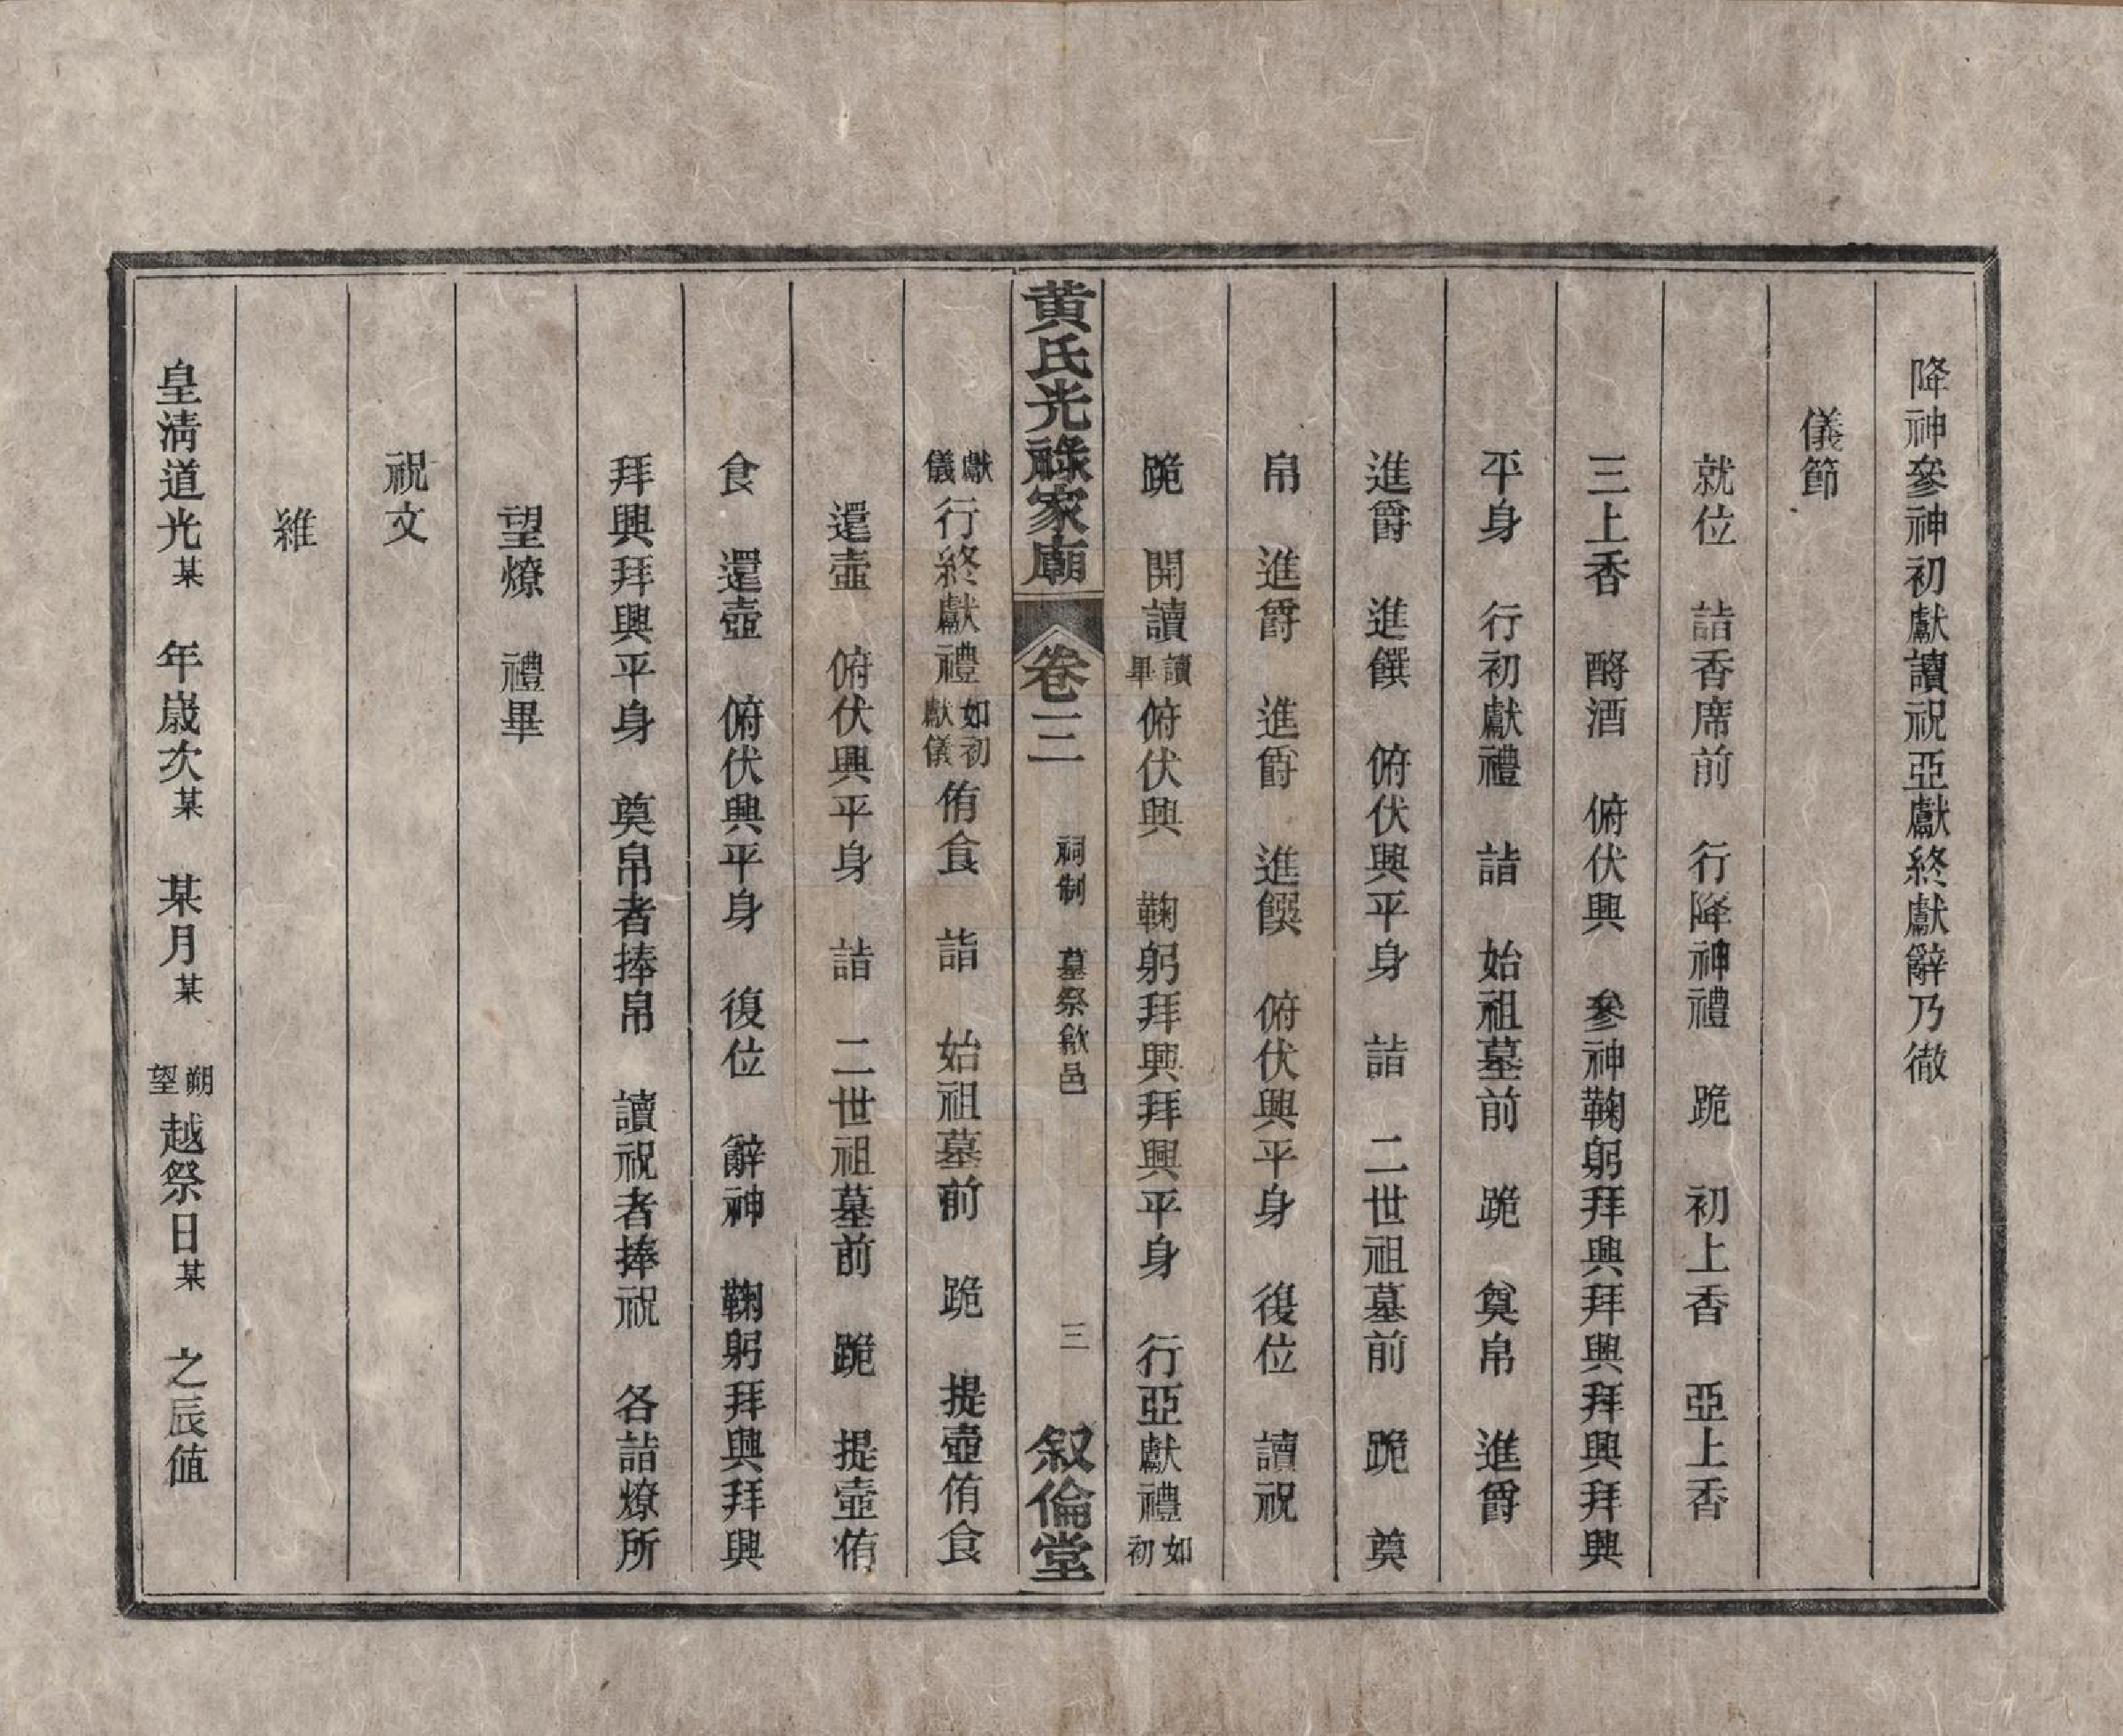 降神參神初獻讀祝亞獻終獻辭乃徹
儀節
就位　詣香席前　行降神禮　跪　初上香　亞上香
三上香　酹酒　俯伏興　參神鞠躬拜興拜興拜興拜興
平身　行初獻禮　詣　始祖墓前　跪　奠帛　進爵
進爵　進饌　俯伏興平身　詣　二世祖墓前　跪　奠
帛　進爵　進爵　進饌　俯伏興平身　復位　讀祝
跪　開讀讀畢俯伏興　鞠躬拜興拜興平身　行亞獻禮如初
黃氏光祿家廟　卷三　祠制　墓祭歙邑　三　叙倫堂
獻儀行終獻禮如初獻儀侑食　詣　始祖墓前　跪　提壺侑食
還壺　俯伏興平身　詣　二世祖墓前　跪　提壺侑
食　還壺　俯伏興平身　復位　辭神　鞠躬拜興拜興
拜興拜興平身　奠帛者捧帛　讀祝者捧祝　各詣燎所
望燎　禮畢
祝文
維
皇淸道光某　年歲次某　某月某　朔望越祭日某　之辰値